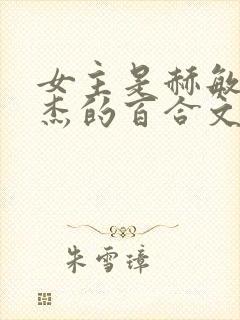 女主是赫敏
杰的百合文
朱雪璋